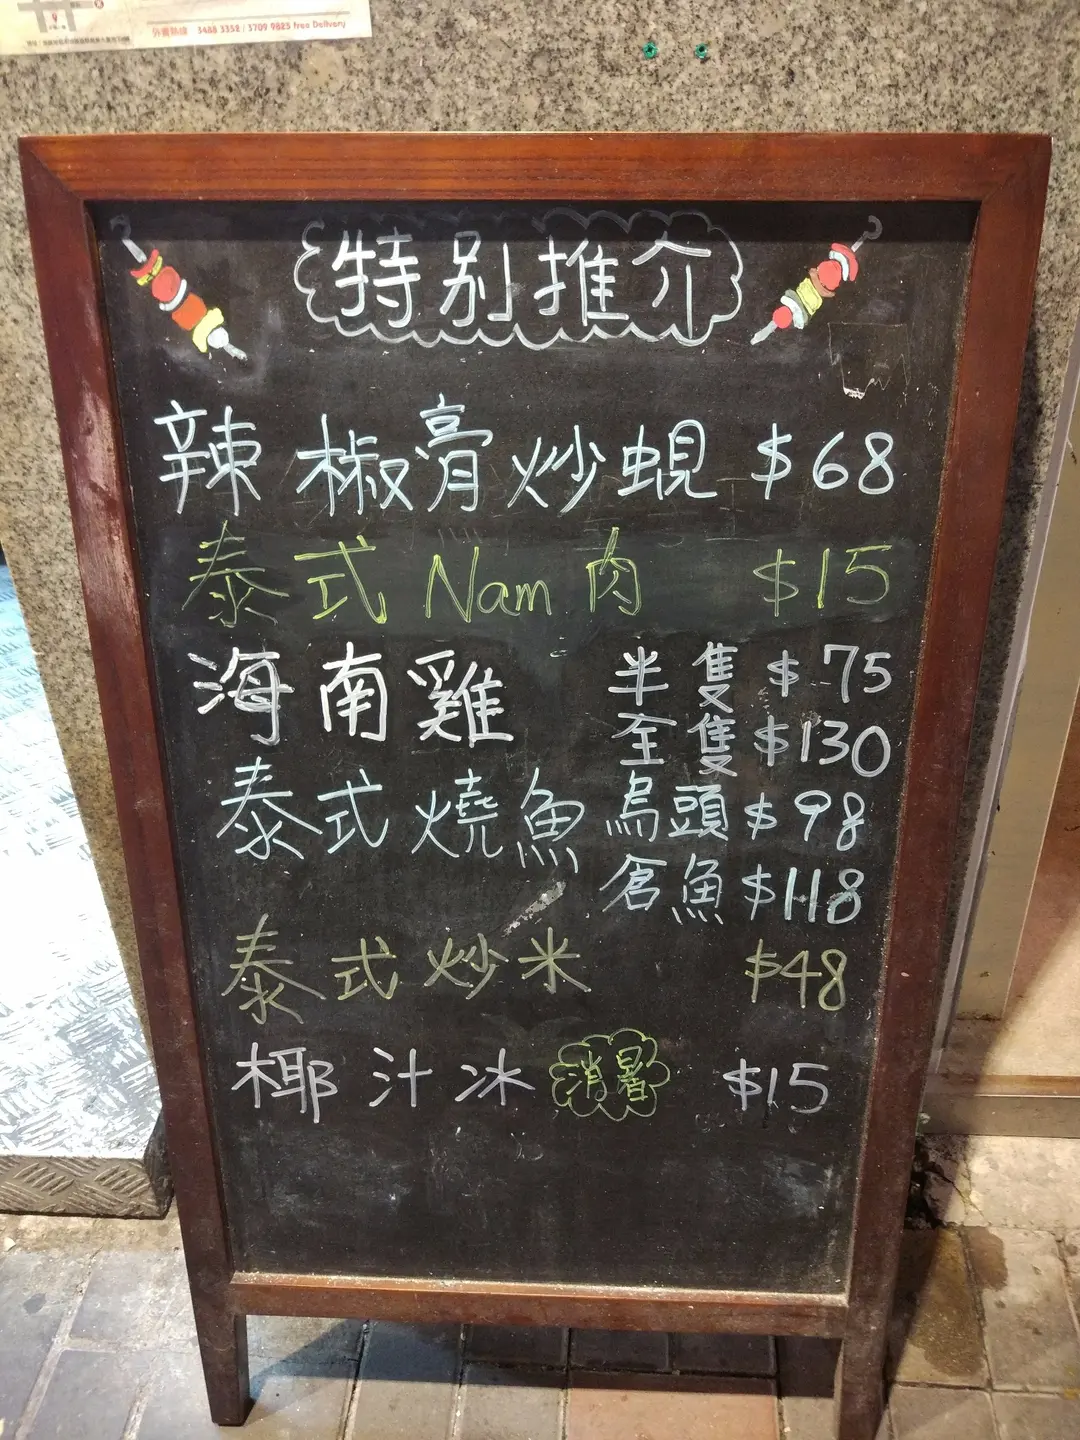 外賣熱線 3488 3352 / 3709 9823 free Delivery
特别推介
辣椒膏炒蜆 $68
泰式Nam肉 $15
海南雞 半隻 $75
全隻 $130
泰式燒魚 烏頭 $98
倉魚 $118
泰式炒米 $48
椰汁冰 消暑 $15